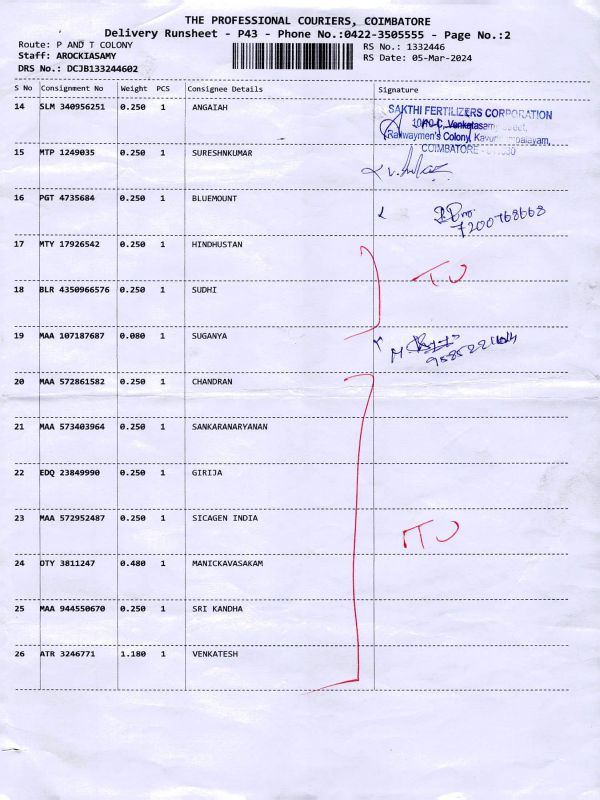 THE PROFESSIONAL COURIERS, COIMBATORE
Delivery Runsheet - P43 - Phone No.:0422-3505555 - Page No.:2
Route: P AND T COLONY RS No.: 1332446
Staff: AROCKIASAMY RS Date: 05-Mar-2024
DRS No.: DCJB133244602
S No Consignment No Weight PCS Consignee Details Signature
14 SLM 340956251 0.250 1 ANGAIAH
SAKTHI FERTILIZERS CORPORATION
Railwaymen's Colony,
COIMBATORE
15 MTP 1249035 0.250 1 SURESHNKUMAR
16 PGT 4735684 0.250 1 BLUEMOUNT
7200768668
17 MTY 17926542 0.250 1 HINDHUSTAN
18 BLR 4350966576 0.250 1 SUDHI
19 MAA 107187687 0.080 1 SUGANYA
20 MAA 572861582 0.250 1 CHANDRAN
21 MAA 573403964 0.250 1 SANKARANARYANAN
22 EDQ 23849990 0.250 1 GIRIJA
23 MAA 572952487 0.250 1 SICAGEN INDIA
24 OTY 3811247 0.480 1 MANICKAVASAKAM
25 MAA 944550670 0.250 1 SRI KANDHA
26 ATR 3246771 1.180 1 VENKATESH